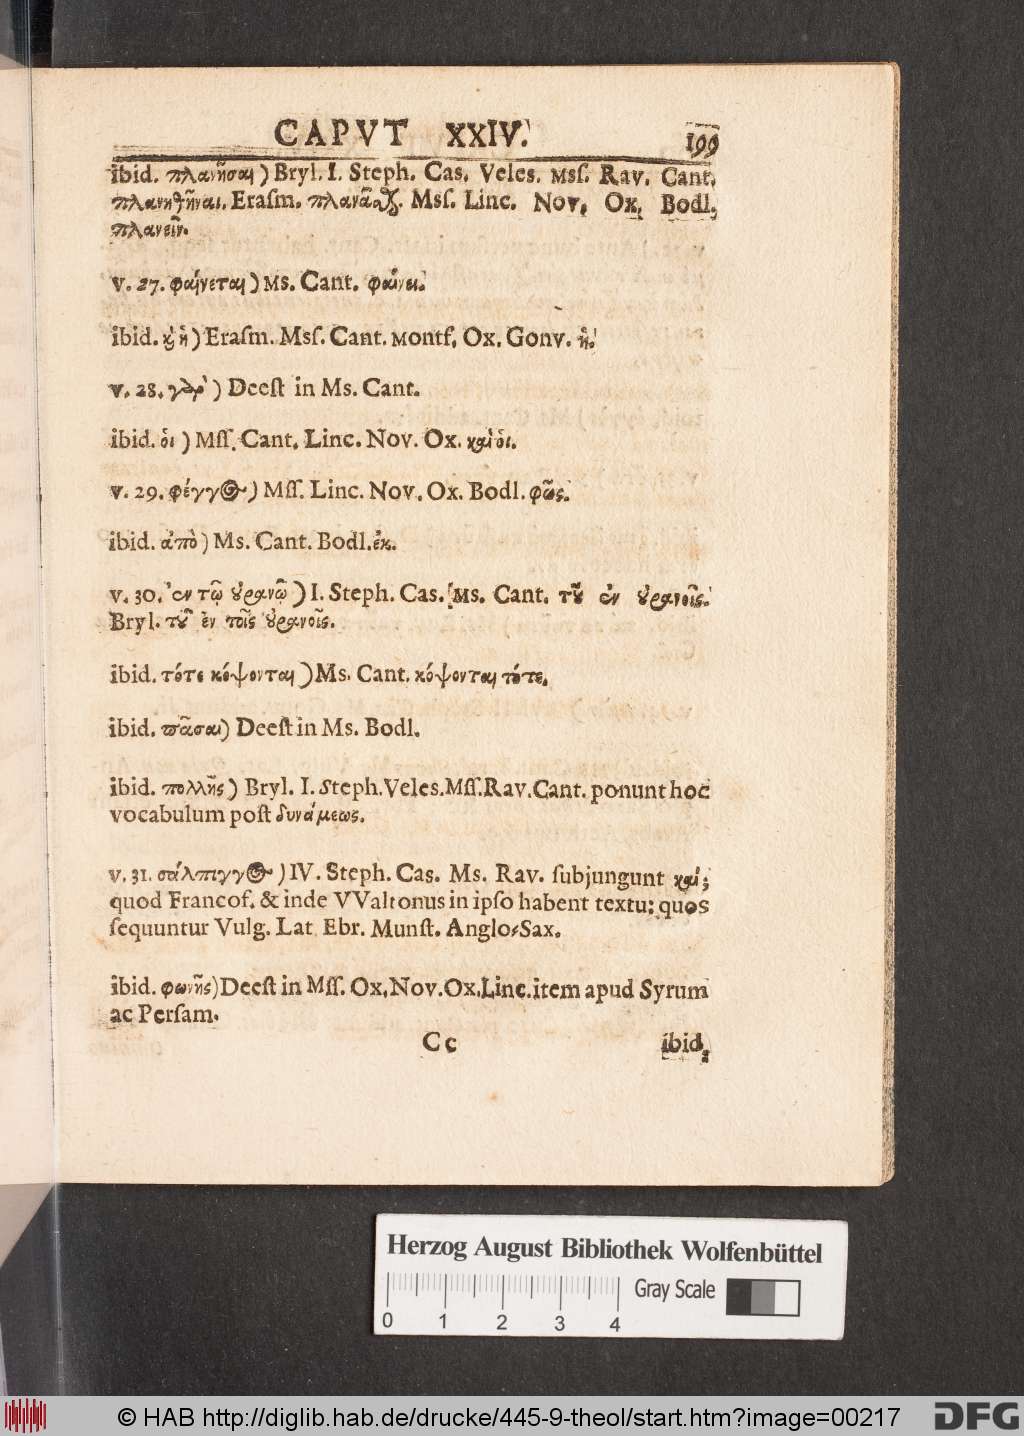 CAPVT XXIV. 199
ibid. πλανῆσαι) Bryl. I. Steph. Cas. Veles. Mſſ. Rav. Cant.
πλανηθῆναι. Eraſm. πλανᾶσθαι. Mſſ. Linc. Nov. Ox. Bodl.
πλανεῖν.
v. 27. φαίνεται) Ms. Cant. φαίνει.
ibid. καὶ ἡ) Eraſm. Mſſ. Cant. Montf. Ox. Gonv. ἡ.
v. 28. γὰρ) Deeſt in Ms. Cant.
ibid. οἱ) Mſſ. Cant. Linc. Nov. Ox. καὶ οἱ.
v. 29. φέγγος) Mſſ. Linc. Nov. Ox. Bodl. φῶς.
ibid. ἀπὸ) Ms. Cant. Bodl. ἐκ.
v. 30. ἐν τῷ ȣ̓ρανῷ) I. Steph. Cas. Ms. Cant. τȣ͂ ἐν ȣ̓ρανοῖς.
Bryl. τȣ͂ ἐν τοῖς ȣ̓ρανοῖς.
ibid. τότε κόψονται) Ms. Cant. κόψονται τότε.
ibid. πᾶσαι) Deeſt in Ms. Bodl.
ibid. πολλῆς) Bryl. I. Steph. Veles. Mſſ. Rav. Cant. ponunt hoc
vocabulum poſt δυνάμεως.
v. 31. σάλπιγγος) IV. Steph. Cas. Ms. Rav. ſubjungunt καί;
quod Francof. & inde VValtonus in ipſo habent textu: quos
ſequuntur Vulg. Lat Ebr. Munſt. Anglo-Sax.
ibid. φωνῆς) Deeſt in Mſſ. Ox. Nov. Ox. Linc. item apud Syrum
ac Perſam.
Cc ibid.
Herzog August Bibliothek Wolfenbüttel
Gray Scale
0 1 2 3 4
© HAB http://diglib.hab.de/drucke/445-9-theol/start.htm?image=00217
DFG